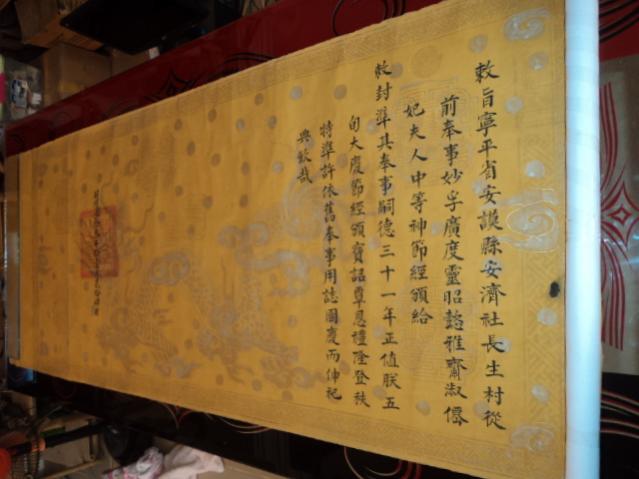 敕旨寧平省安謨縣安濟社長生村從
前奉事妙孚廣度靈昭懿雅齋淑僖
妃夫人中等神節經頒給
敕封準其奉事嗣德三十一年正值朕五
旬大慶節經頒寶詔覃恩禮隆登秩
特準許依舊奉事用誌國慶而伸祀
典欽哉